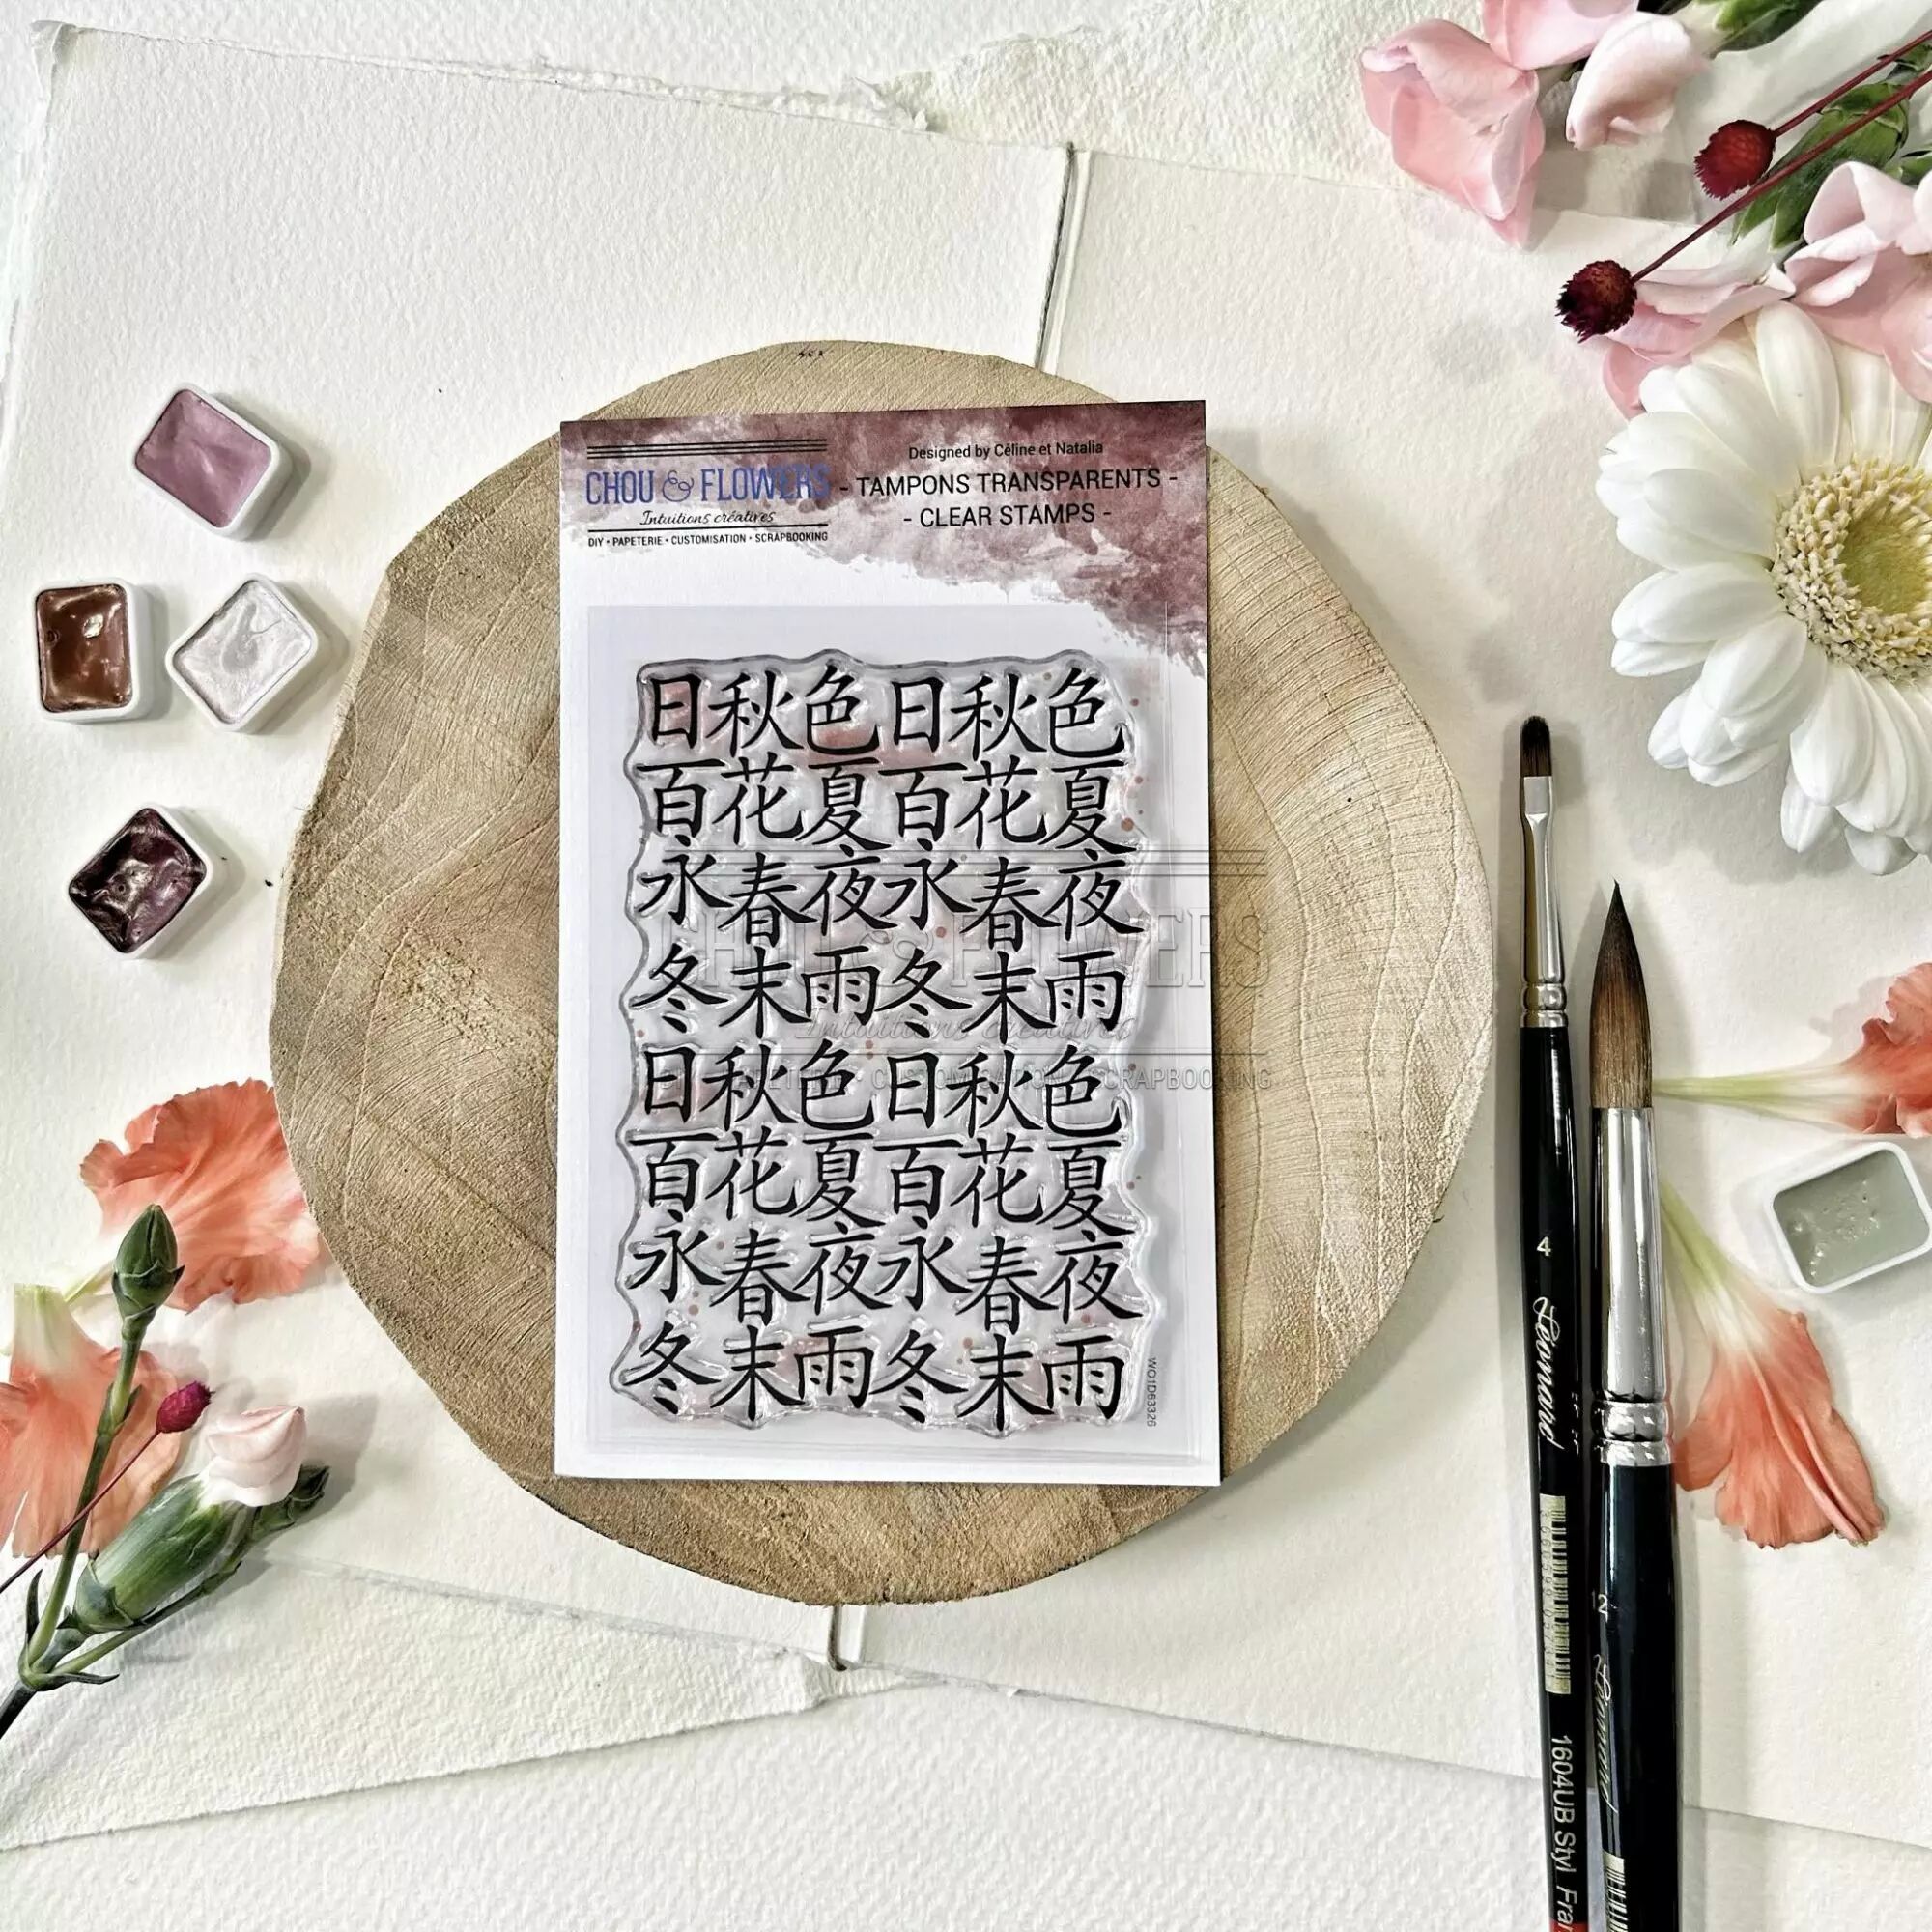 CHOU & FLOWERS
Intuitions créatives
DIY • PAPETERIE • CUSTOMISATION • SCRAPBOOKING
Designed by Céline et Natalia
- TAMPONS TRANSPARENTS -
- CLEAR STAMPS -
日秋色日秋色
百花夏百花夏
永春夜永春夜
冬末雨冬末雨
日秋色日秋色
百花夏百花夏
永春夜永春夜
冬末雨冬末雨
CHOU & FLOWERS
Intuitions créatives
CUSTOMISATION • SCRAPBOOKING
4
Léonard
1604UB Styl
12
Léonard